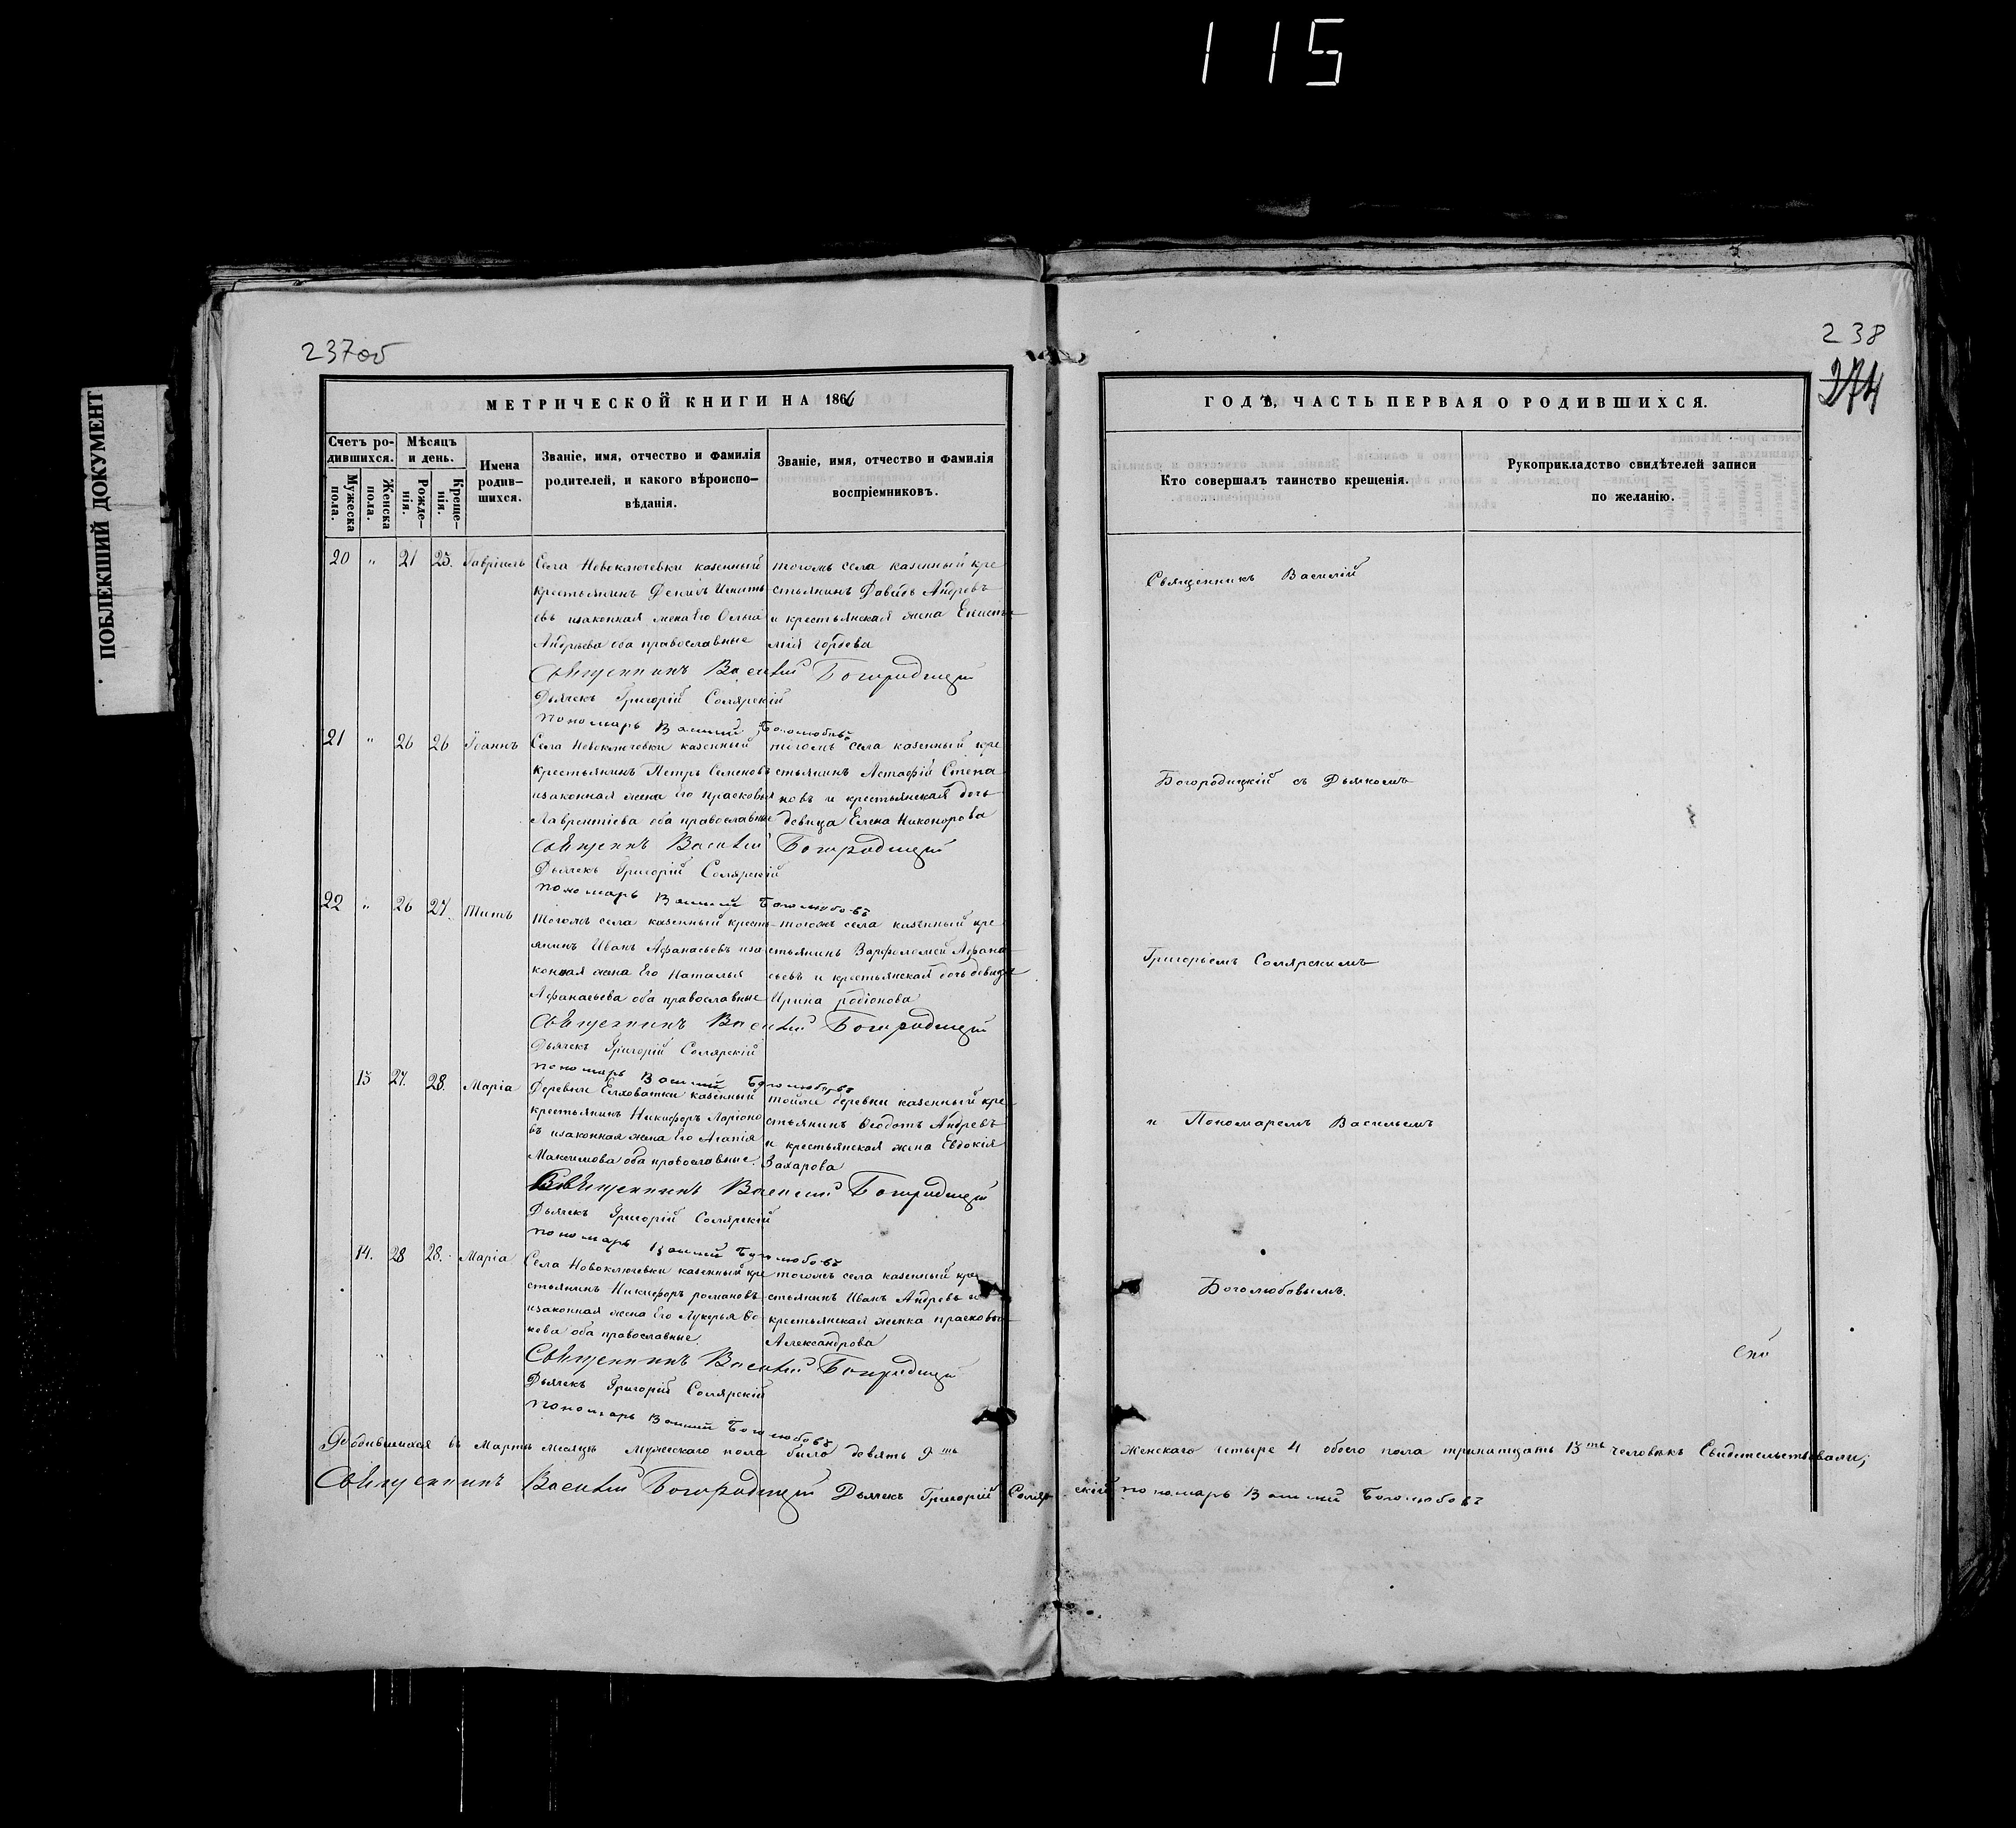 115
ПОБЛЕКШИЙ ДОКУМЕНТ
237об
МЕТРИЧЕСКОЙ КНИГИ НА 1866
Счетъ родившихся.
Мужеска пола.
Женска пола.
Мѣсяцъ и день.
Рожденія.
Крещенія.
Имена родившихся.
Званіе, имя, отчество и фамилія
родителей, и какого вѣроиспо-
вѣданія.
Званіе, имя, отчество и фамилія
воспріемниковъ.
20 " 21 25. Гавріилъ Села Новоключевки казенный тогожъ села казенный кре
крестьянинъ стьянинъ Давидъ Андревъ
евъ изаконная жена Его Ольга и крестьянская жена
Андрьева оба православные
Священникъ Василій Богородицкій
Дьячекъ Григорій Солярскій
Пономарь Василій Боголюбовъ
21 " 26 26 Іоаннъ Села Новоключевки казенный тогожъ села казенный кре
крестьянинъ Петръ Семеновъ стьянинъ Астафій Степа
изаконная жена Его прасковья новъ и крестьянская дочь
Лаврентіева оба православные девица Елена Никонорова
Священникъ Василій Богородицкій
Дьячекъ Григорій Солярскій
Пономарь Василій Боголюбовъ
22 " 26 27. Титъ Тогожъ села казенный кресть- тогожъ села казенный кре
янинъ Иванъ Афанасьевъ иза стьянинъ Варфоломей Афана
конная жена Его Наталья сьевъ и крестьянская дочь девица
Афанасьева оба православные Ирина родіонова
Священникъ Василій Богородицкій
Дьячекъ Григорій Солярскій
Пономарь Василій Боголюбовъ
13 27. 28. Маріа Деревни Елховатки казенный тойже деревни казенный кре
крестьянинъ Никифоръ Ларіоно стьянинъ Ѳеодотъ Андревъ
въ изаконная жена Его Агапія и крестьянская жена Евдокія
Максимова оба православные. Захарова
Священникъ Василій Богородицкій
Дьячекъ Григорій Солярскій
Пономарь Василій Боголюбовъ
14. 28 28. Маріа Села Новоключевки казенный кре тогожъ села казенный кре
стьянинъ Никифоръ романовъ стьянинъ Иванъ Андревъ и
изаконная жена Его Лукерья крестьянская женка прасковья
оба православные Александрова
Священникъ Василій Богородицкій
Дьячекъ Григорій Солярскій
Пономарь Василій Боголюбовъ
Родившихся въ Марте месяце мужескаго пола было девять 9ть
Священникъ Василій Богородицкій Дьячекъ Григорій Соляр
238
274
ГОДЪ, ЧАСТЬ ПЕРВАЯ О РОДИВШИХСЯ.
Кто совершалъ таинство крещенія.
Рукоприкладство свидѣтелей записи
по желанію.
Священникъ Василій
Богородицкій съ Дьячкомъ
Григорьемъ Солярскимъ
и Пономаремъ Васильемъ
Боголюбовымъ.
женскаго четыре 4 обоего пола тринатцать 13ть человекъ Свидетельствовали;
скій пономарь Василій Боголюбовъ